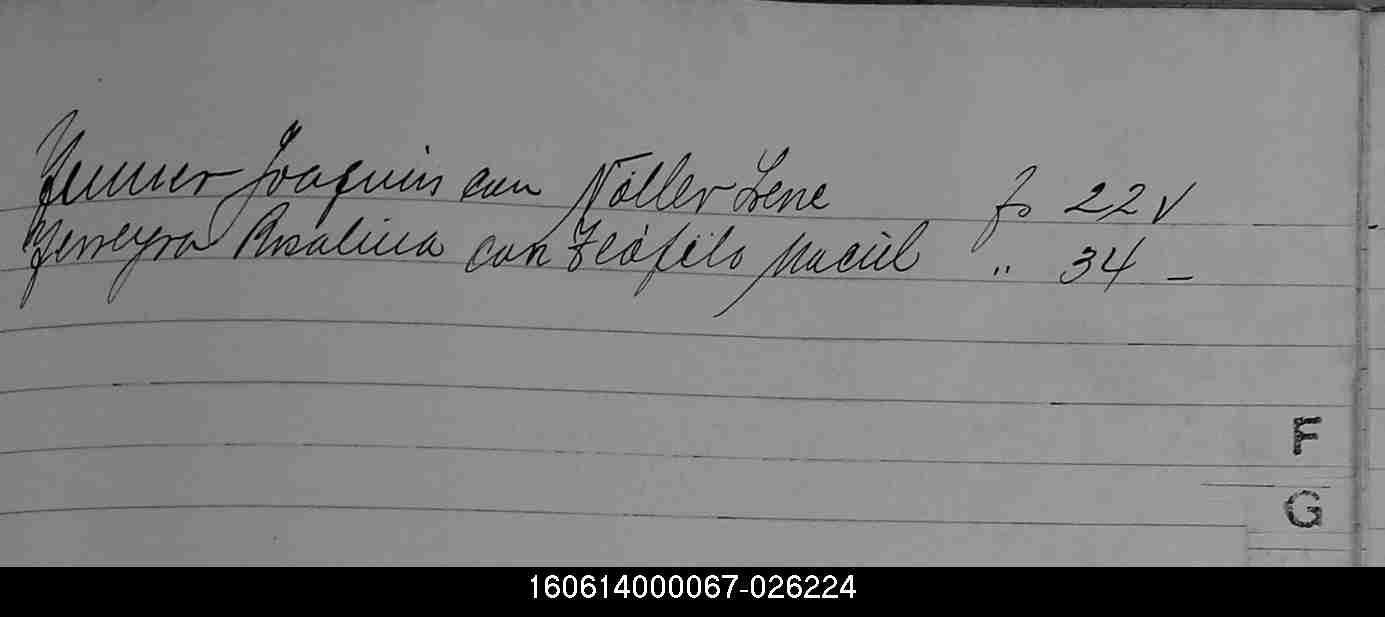 Fenner Joaquin con Nöller Irene fs 22 v
Ferreyra Rosalina con Teófilo Maciel " 34 -
F
G
160614000067-026224